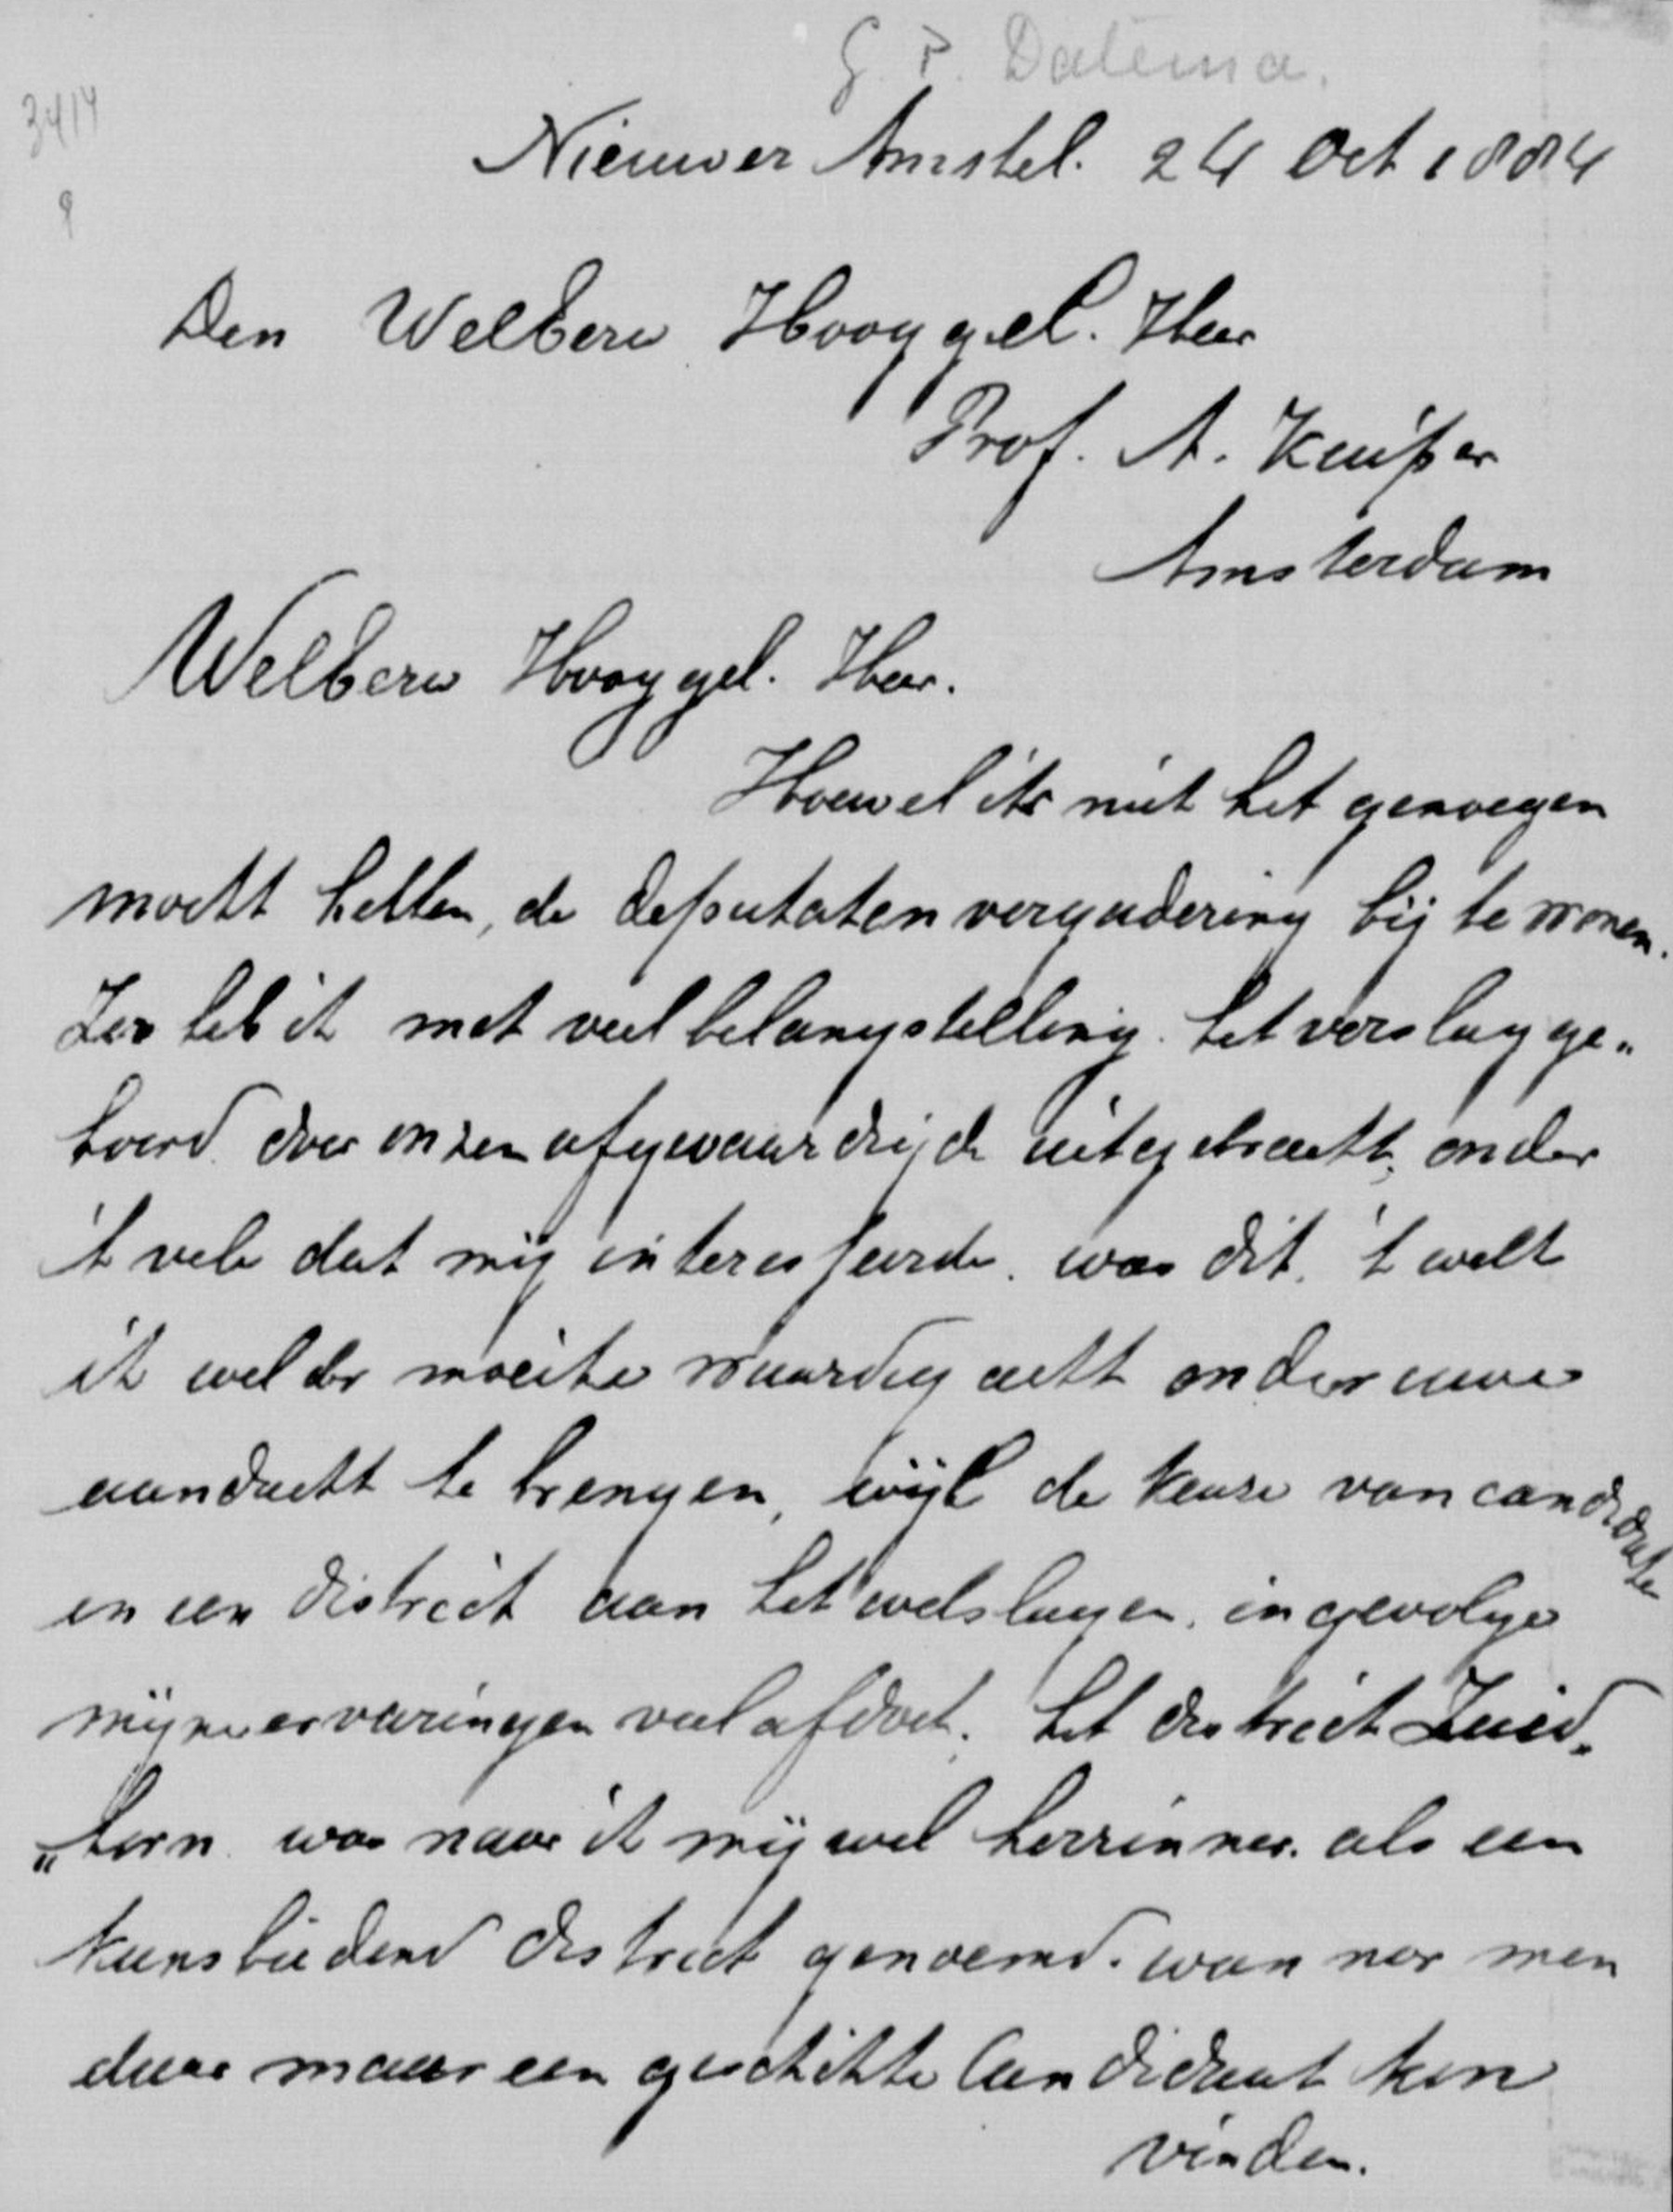 G. P. Datema.
3414
9
Nieuwer Amstel. 24 Oct 1884
Den Welberw Hooggel. Heer
Prof. A. Kuiper
Amsterdam
Welberw Hooggel. Heer.
Hoewel ik niet het genoegen
mocht hebben, de deputaten vergadering bij te wonen.
Zoo heb ik met veel belangstelling het verslag ge„
hoord door onzen afgevaardigde uitgebracht, onder
't vele dat mij interesseerde. was dit. 't welk
ik wel der moeite waardig acht onder uwe
aandacht te brengen, wijl de keuse van candidaten
in een district aan het welslagen, ingevolge
mijne ervaringen veel afdoet. het district Zuid„
„horn was naar ik mij wel herrinner. als een
kansbiedend district genoemd. wanneer men
daar maar een geschikte Candidaat kon
vinden.